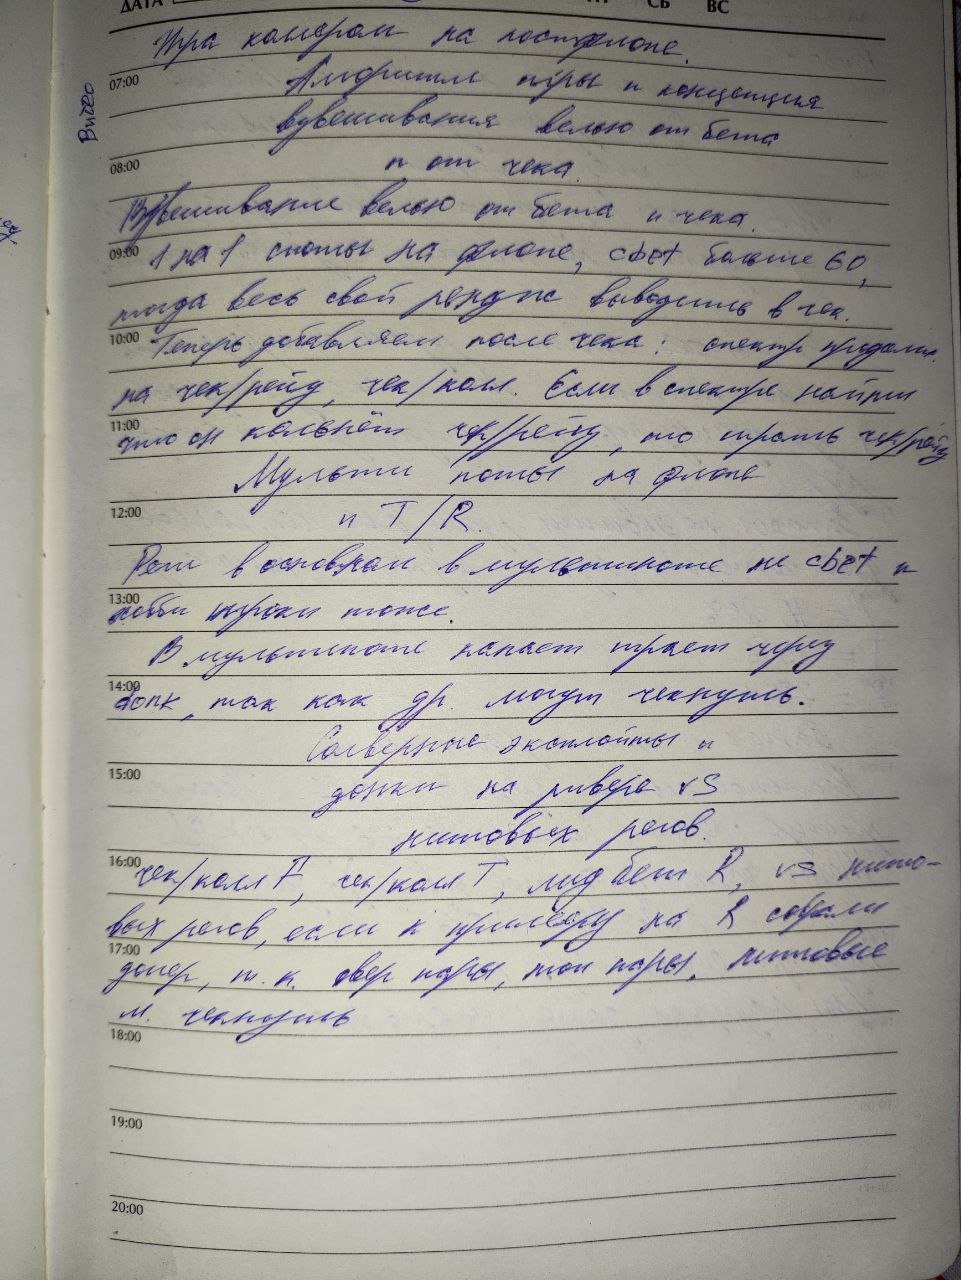 ДАТА СБ ВС
Игра колером на постфлопе.
Видео
07:00
Алгоритм игры и концепция
взвешивания велью от бета
08:00
и от чека.
Взвешивание велью от бета и чека.
09:00
1 на 1 споты на флопе, cbet больше 60,
тогда весь свой рендж выводить в чек.
10:00
Теперь добавляем после чека: спектр
на чек/рейз, чек/колл. Если в спектре найти
11:00
что он кольнёт чек/рейз, то играть чек/рейз
Мульти поты на флопе
12:00
и T/R.
Реги в основном в мультипоте не cbet и
13:00
хобби игроки тоже.
В мультипоте играет через
14:00
донк, так как др. могут чекнуть.
Солверные эксплойты и
15:00
донки на ривере vs
лимитовых регов.
16:00
чек/колл F, чек/колл T, лид бет R, vs лимито-
вых регов, если к примеру на R собрали
17:00
допер, т.к. овер пары, топ пары, лимитовые
м. чекнуть
18:00
19:00
20:00